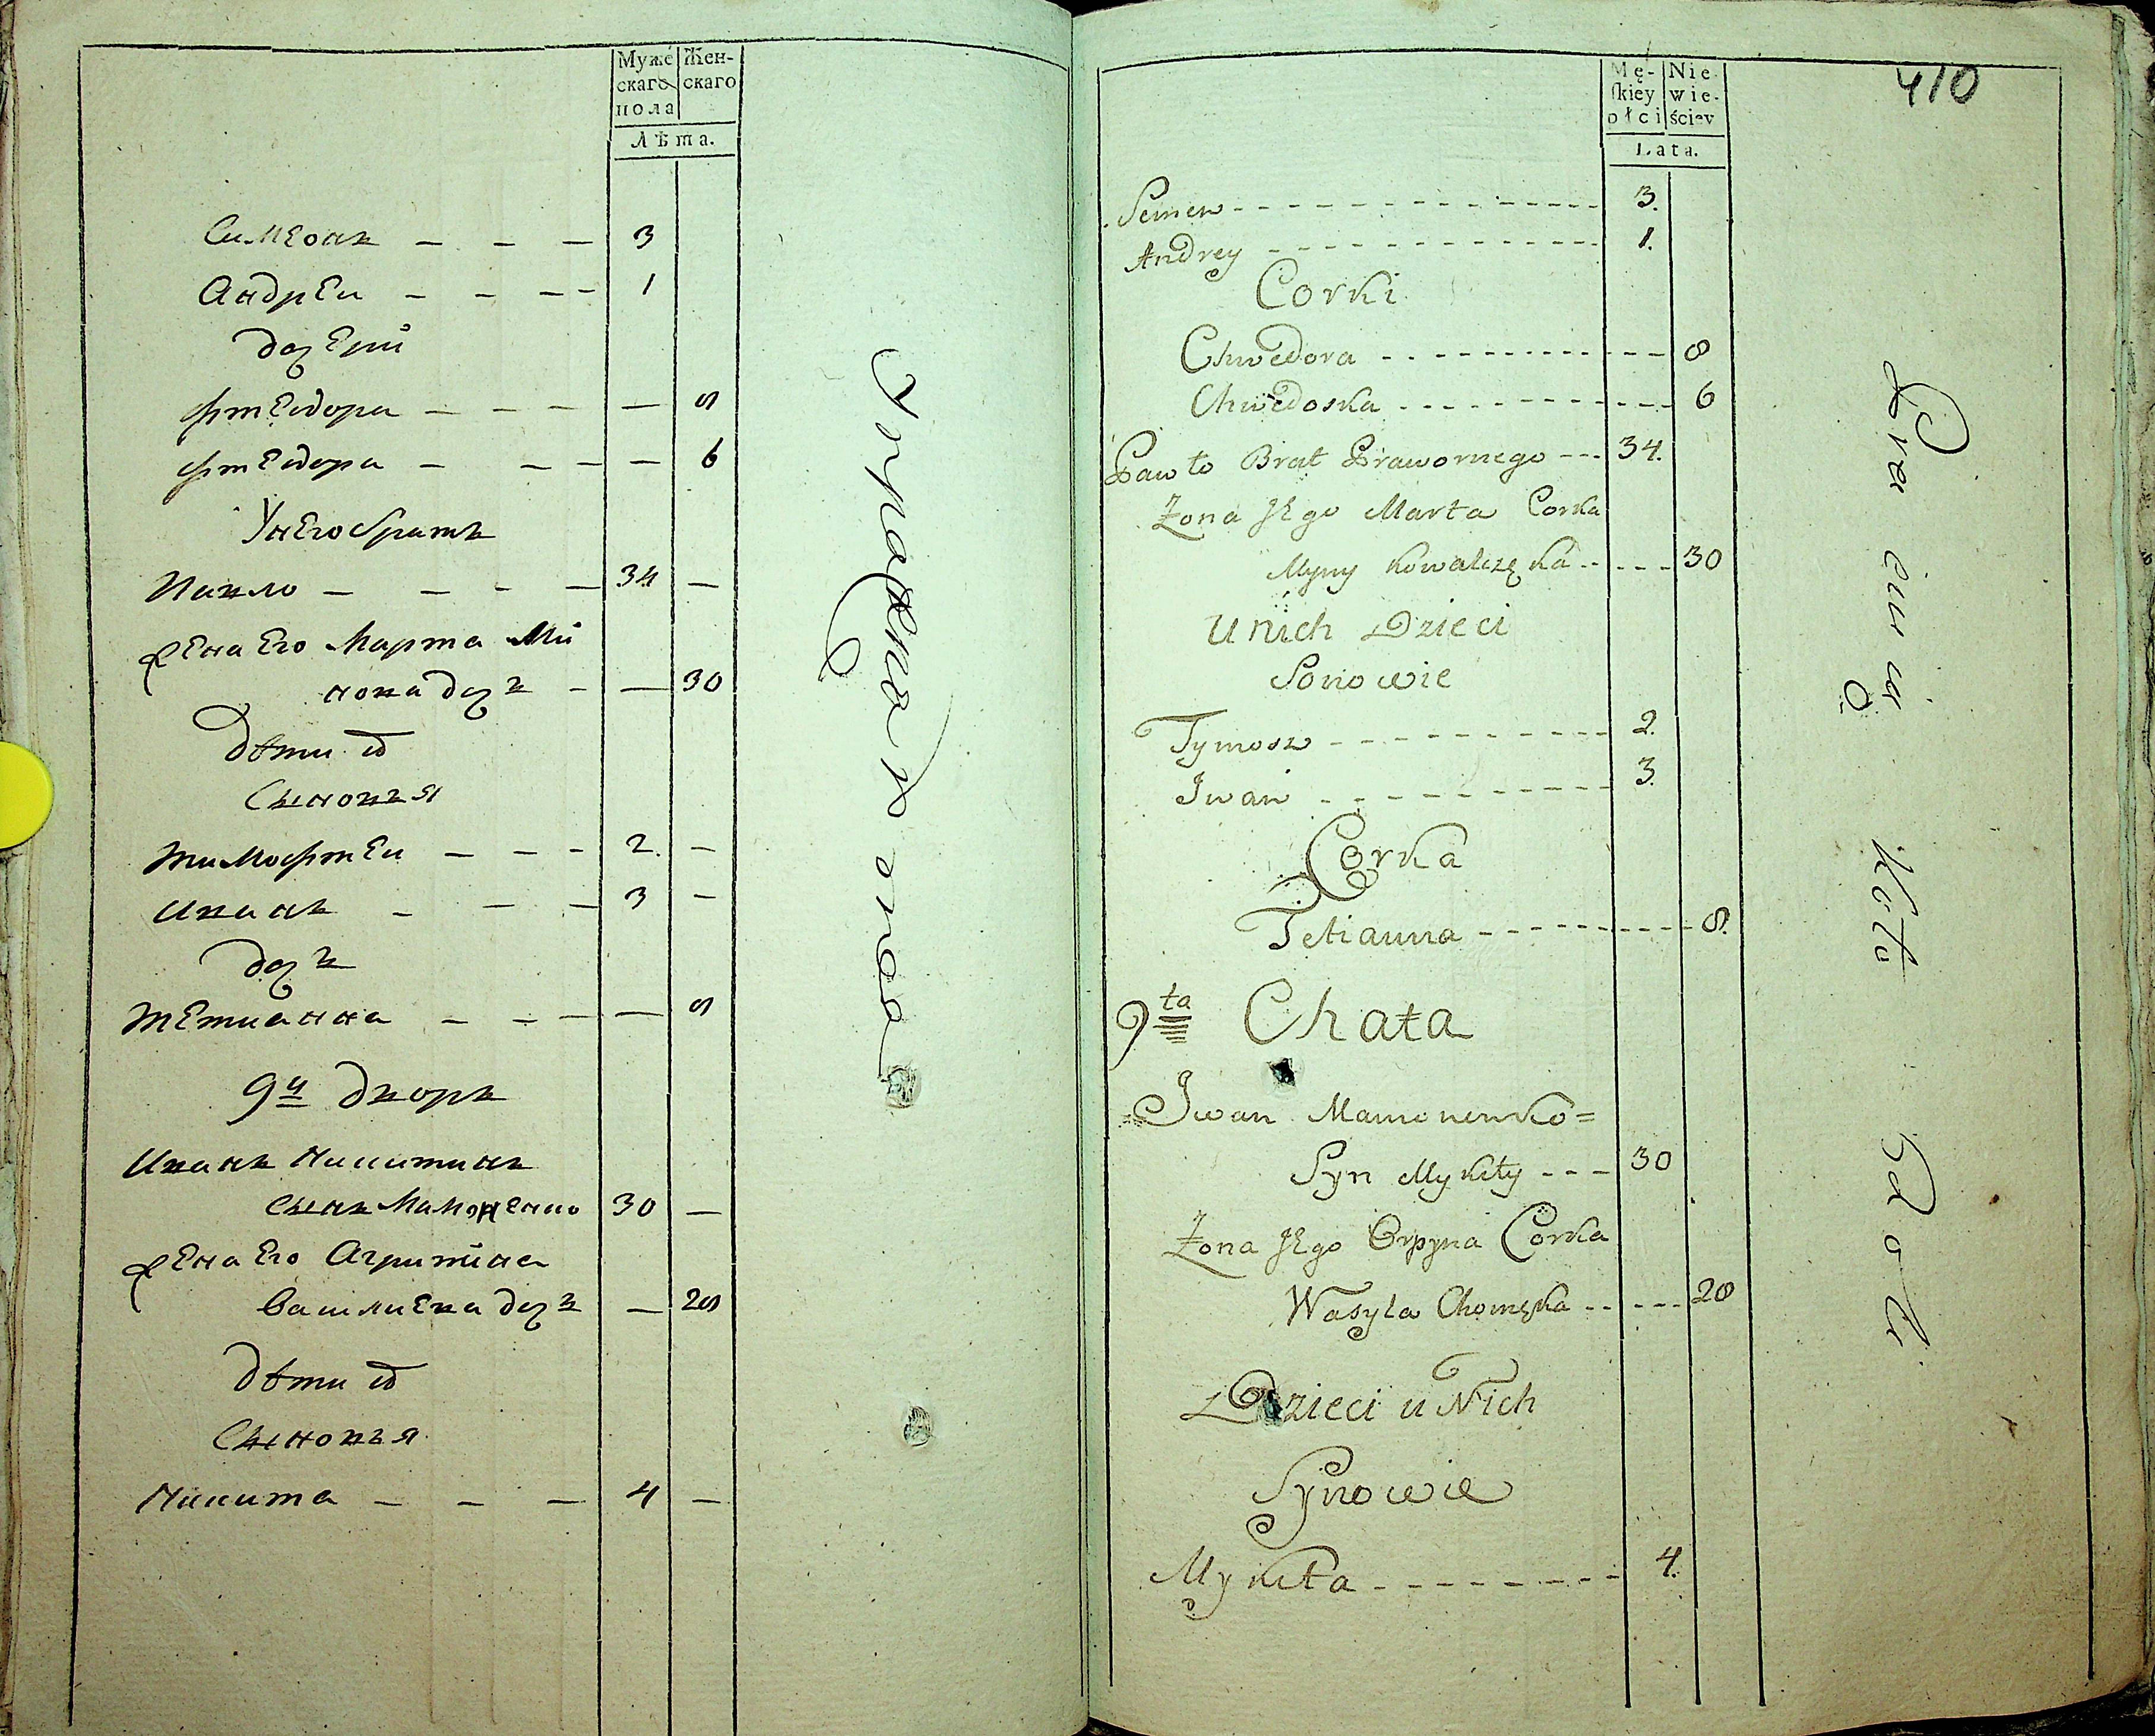 Мужескаго пола
Женскаго
Лѣта.
Симеонъ – – – 3
Андреи – – – – 1
дочери
Фтеодора – – – – 8
Фтеодора – – – – 6
У него братъ
Павло – – – – 34 –
Жена его Марта Ми
нова дочъ – – 30
Дѣти ихъ
Сыновья
Тимофтеи – – – 2. –
Иванъ – – – 3 –
дочъ
Тетианна – – – – 8
9й дворъ
Иванъ Никитинъ
сынъ Мамоненко 30 –
Жена его Агрипина
Василиева дочъ – 28
Дѣти ихъ
Сыновья
Никита – – – 4 –
410
Męskiey płci
Niewieściey
Lata.
Semen - - - 3.
Andrey - - - 1.
Corki
Chwedora - - - 8
Chwedoska - - - 6
Pawło Brat Prawornego - - - 34.
Żona Jego Marta Corka
Myny Kowalczęka - - - 30
U nich Dzieci
Sonowie
Tymosz - - - 2.
Iwan - - - 3.
Corka
Tetianna - - - 8.
9ta Chata
Iwan Mamonenko =
Syn Mykity - - - 30
Żona Jego Orpyna Corka
Wasyla Chomęka - - - 28
Dzieci u Nich
Synowie
Mykita - - - 4.